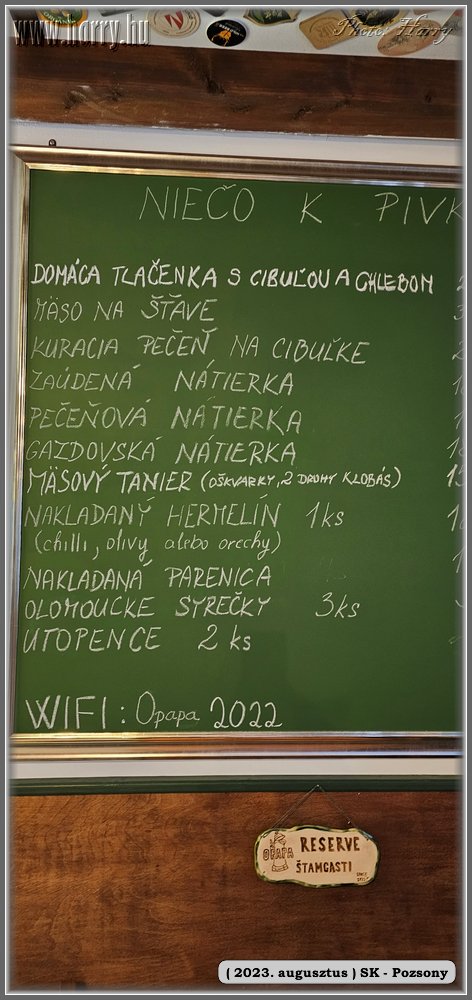 www.horry.hu
Photo: Harry
NIEČO K PIVK
DOMÁCA TLAČENKA S CIBUĽOU A CHLEBOM
MÄSO NA ŠŤAVE
KURACIA PEČEŇ NA CIBUĽKE
ZAÚDENÁ NÁTIERKA
PEČEŇOVÁ NÁTIERKA
GAZDOVSKÁ NÁTIERKA
MÄSOVÝ TANIER (OŠKVARKY, 2 DRUHY KLOBÁS)
NAKLADANÝ HERMELÍN 1ks
(chilli, olivy alebo orechy)
NAKLADANÁ PARENICA
OLOMOUCKE SYREČKY 3ks
UTOPENCE 2 ks
WIFI: Opapa 2022
OPAPA
RESERVE
ŠTAMGASTI
( 2023. augusztus ) SK - Pozsony